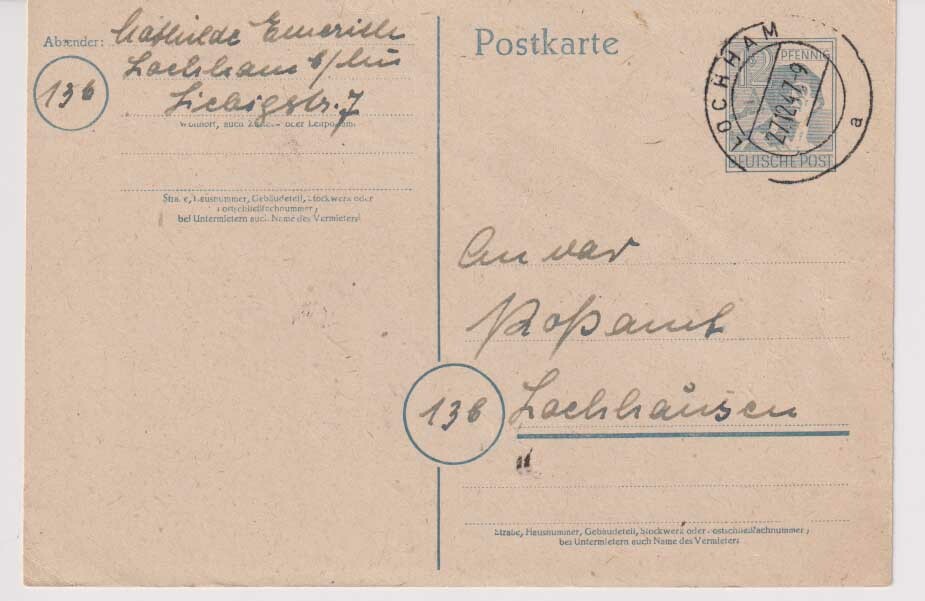 Absender: Mathilde Emerich
Lochham b/Mü
13b
Liebigstr. 7
Wohnort, auch Zustell- oder Leitpostamt
Straße, Hausnummer, Gebäudeteil, Stockwerk oder
Postschließfachnummer;
bei Untermietern auch Name des Vermieters
Postkarte
12 PFENNIG
DEUTSCHE POST
LOCHHAM
27.12.47.-9
a
An das
Postamt
13b
Lochhausen
Straße, Hausnummer, Gebäudeteil, Stockwerk oder Postschließfachnummer;
bei Untermietern auch Name des Vermieters